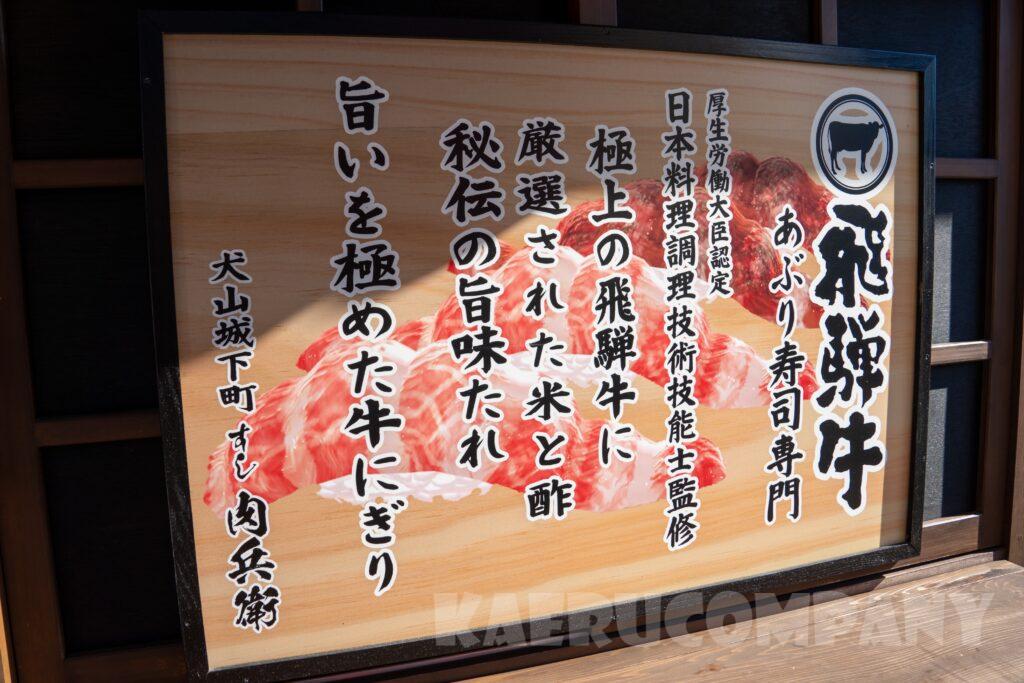 飛騨牛
あぶり寿司専門
厚生労働大臣認定
日本料理調理技術技能士監修
極上の飛騨牛に
厳選された米と酢
秘伝の旨味たれ
旨いを極めた牛にぎり
犬山城下町 すし 肉兵衛
KAERUCOMPANY